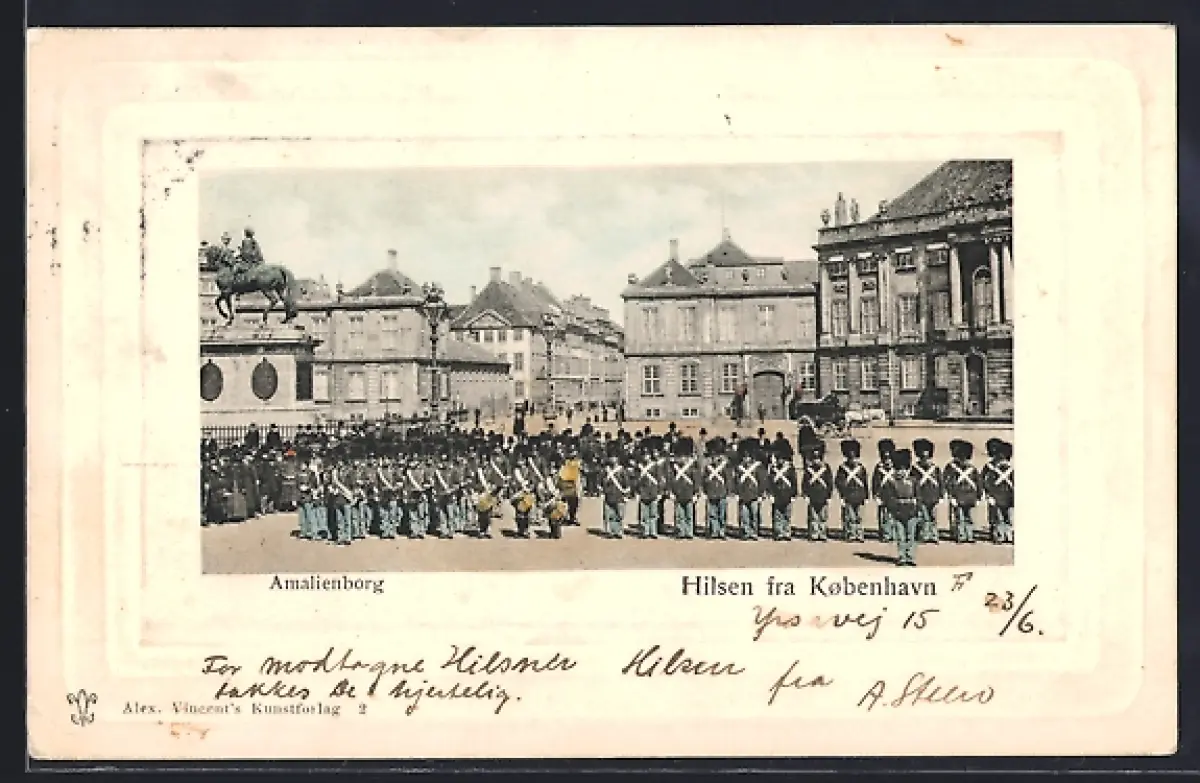 Amalienborg
Hilsen fra København
vej 15 23/6.
For modtagne Hilsner Hilsen fra A. Steen
takkes De hjertelig.
Alex. Vincent's Kunstforlag 2